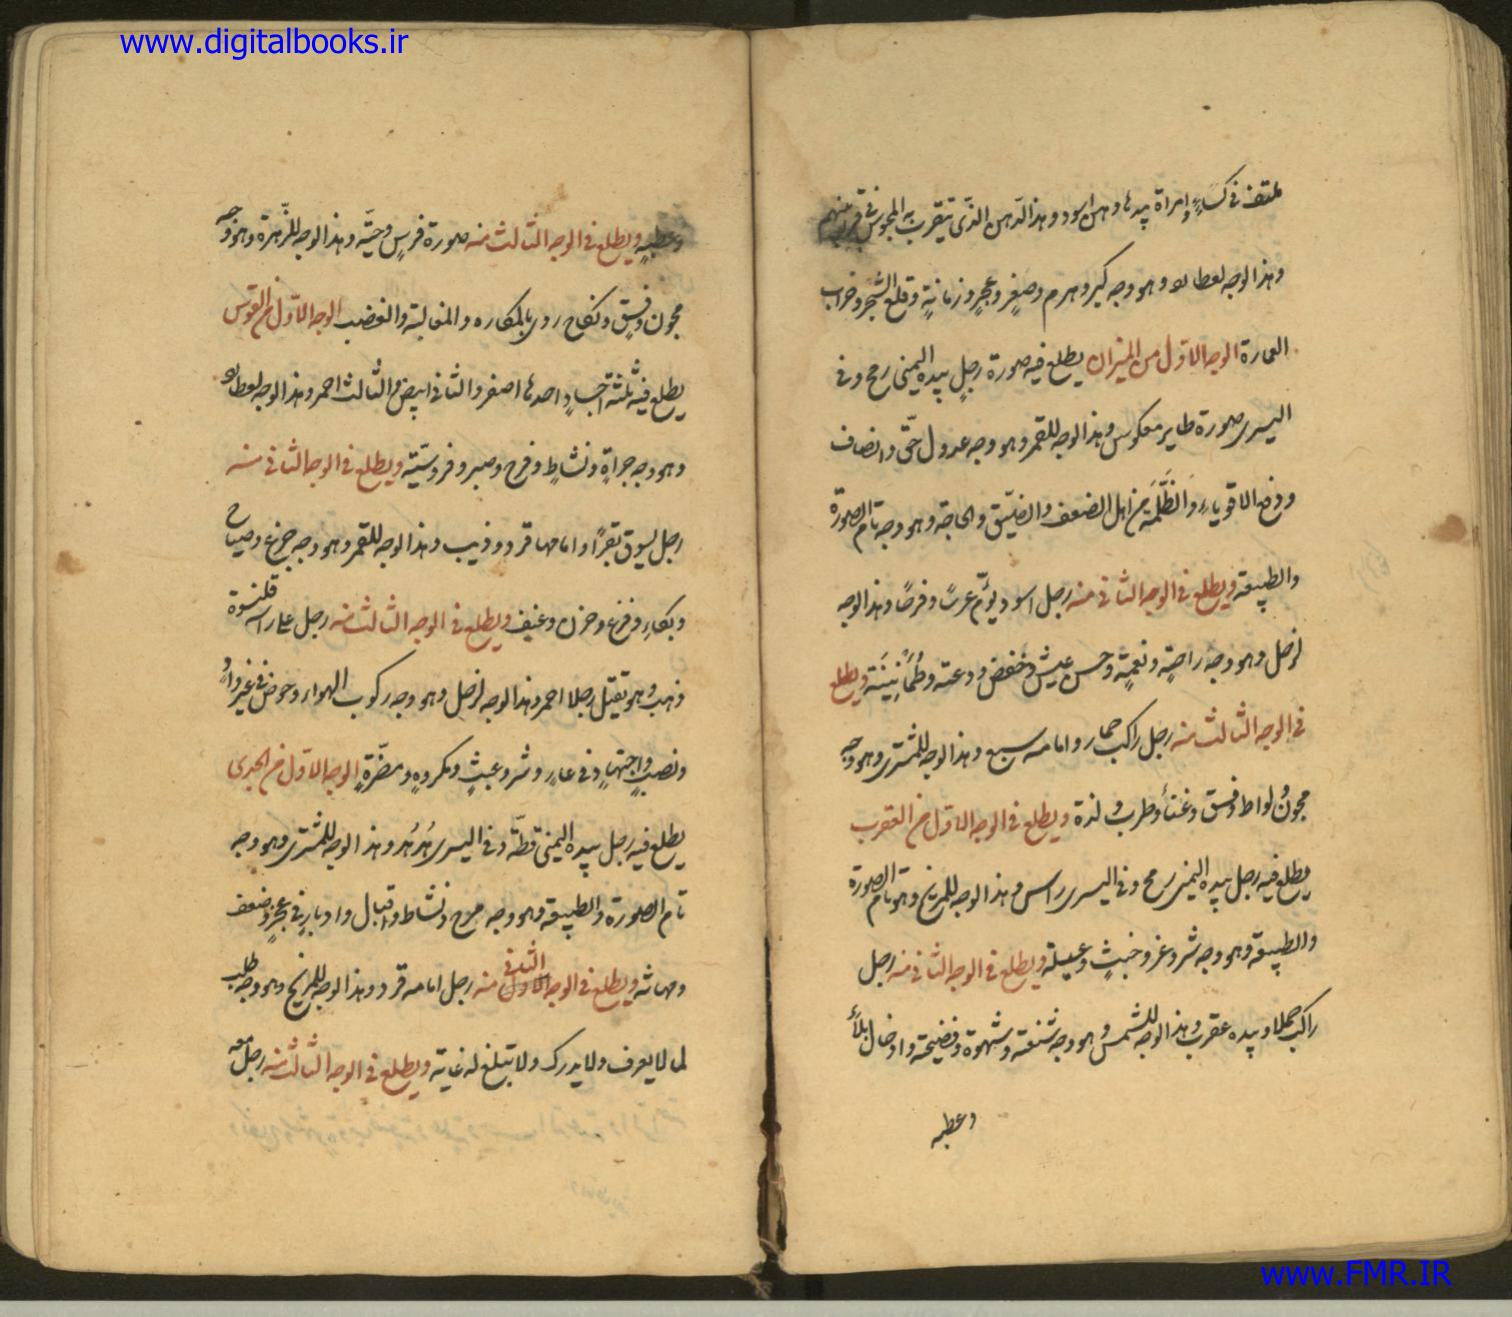 www.digitalbooks.ir
ملتف فی کساءٍ وامراة بیدها دهن اسود وهذا الدهن الذی یتقرب به المجوس فی
وهذا الوجه لعطارد وهو وجه کبر وهرم وصغر وعجز وزمانةٍ وقلع الشجر وخراب
العمارة الوجه الاول من المیزان یطلع فیه صورة رجلٍ بیده الیمنی رمح وفی
الیسری صورة طایر معکوس وهذا الوجه للقمر وهو وجه عدول حق وانصاف
ودفع الاقویاء والظَّلَمَة من اهل الضعف والضیق والحاجة وهو وجه تام الصورة
والطبیعة ویطلع فی الوجه الثانی منه رجل اسود یؤم عرسًا وفرحًا وهذا الوجه
لزحل وهو وجه راحةٍ ونعمةٍ وحسن عیش وخفض ودعة وطُمَانِینَة ویطلع
فی الوجه الثالث منه رجل راکب حمار وامامه سبع وهذا الوجه للمشتری وهو وجه
مجون ولواط وفسق وغناء وطرب ولذة ویطلع فی الوجه الاول من العقرب
یطلع فیه رجل بیده الیمنی رمح وفی الیسری راس وهذا الوجه للمریخ وهو تام الصورة
والطبیعة وهو وجه شر وغر وخبثٍ وعیلة ویطلع فی الوجه الثانی منه رجل
راکب جملا وبیده عقرب وهذا الوجه للشمس وهو وجه شنعة وشهوة وفضیحة وادخال بلاءٍ
وعطب
وعطبٍ ویطلع فی الوجه الثالث منه صورة فرسٍ وحیّة وهذا الوجه للزّهرة وهو وجه
مجون وفسقٍ ونکاح ردی بالمکاره والمغالبة والغضب الوجه الاوّل من القوس
یطلع فیه ثلثة اجسادٍ احدها اصفر والثانی ابیض والثالث احمر وهذا الوجه لعطارد
وهو وجه جراةٍ ونشاطٍ وفرح وصبر وفروسیّة ویطلع فی الوجه الثانی منه
رجل یسوق بقرًا وامامها قرد وذیب وهذا الوجه للقمر وهو وجه جزع وصیاح
وبکاءٍ وفزع وحزن وعنف ویطلع فی الوجه الثالث منه رجل علی راسه قلنسوة
ذهب وهو یقتل رجلا احمر وهذا الوجه لزحل وهو وجه رکوب الهوا وخوض فی
ونصبٍ واجتهادٍ فی عارٍ وشر وعبثٍ ومکروهٍ ومضرّةٍ الوجه الاوّل من الجدی
یطلع فیه رجل بیده الیمنی قطّة وفی الیسری هُدهُد وهذا الوجه للمشتری وهو وجه
تام الصورة والطبیعة وهو وجه مرح ونشاط واقبال وادبارٍ فی عجزٍ وضعف
ومهانة ویطلع فی الوجه الثانی منه رجل امامه قرد وهذا الوجه للمریخ وهو وجه طلب
لما لا یعرف ولا یدرک ولا یبلغ له غایة ویطلع فی الوجه الثالث منه رجل معه
www.FMR.IR